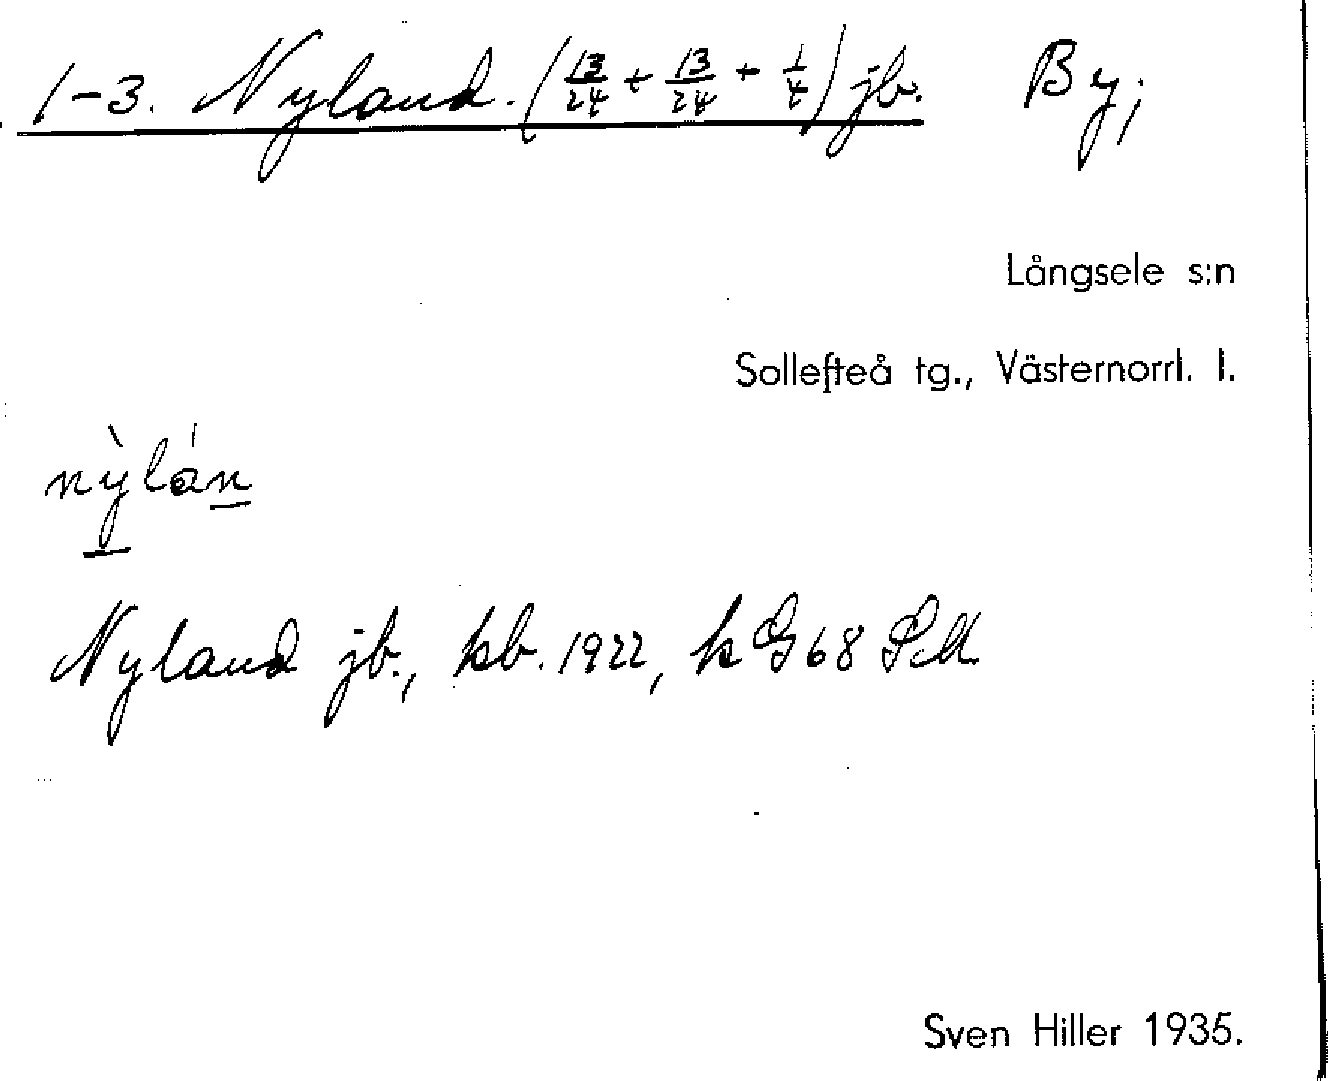 1-3. Nyland. (13/24 + 13/24 + 1/4) jb. By;
Långsele s:n
Sollefteå tg., Västernorrl. l.
nỳlán
Nyland jb., kb. 1922, k G 68 SM
Sven Hiller 1935.